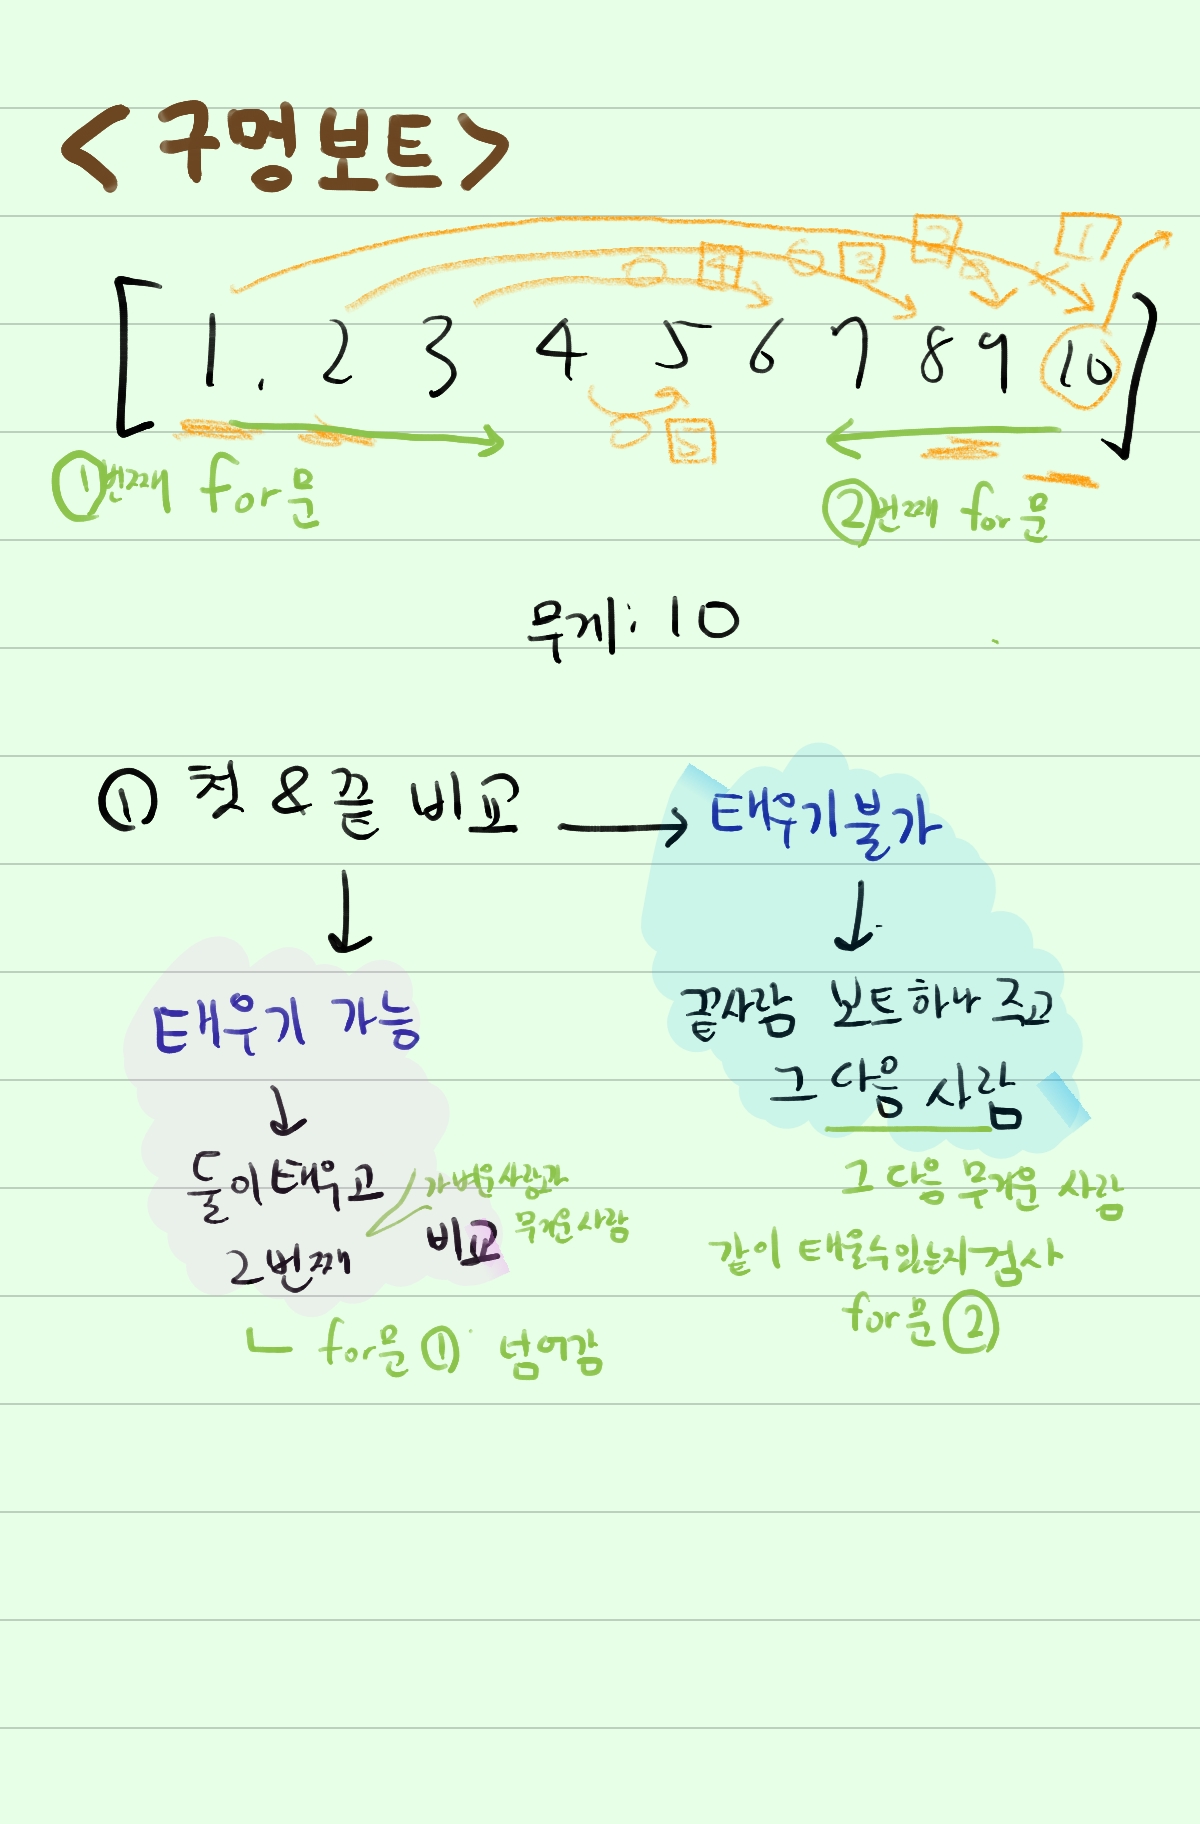 <구명보트>
1 2 3 4 5
[1. 2 3 4 5 6 7 8 9 10]
①번째 for문
②번째 for문
무게: 10
① 첫 & 끝 비교 → 태우기불가
태우기 가능
끝사람 보트하나 주고
그 다음 사람
둘이태우고
2번째 비교
가벼운사람과
무거운사람
for문 ① 넘어감
그 다음 무거운 사람
같이 태울수있는지검사
for문 ②